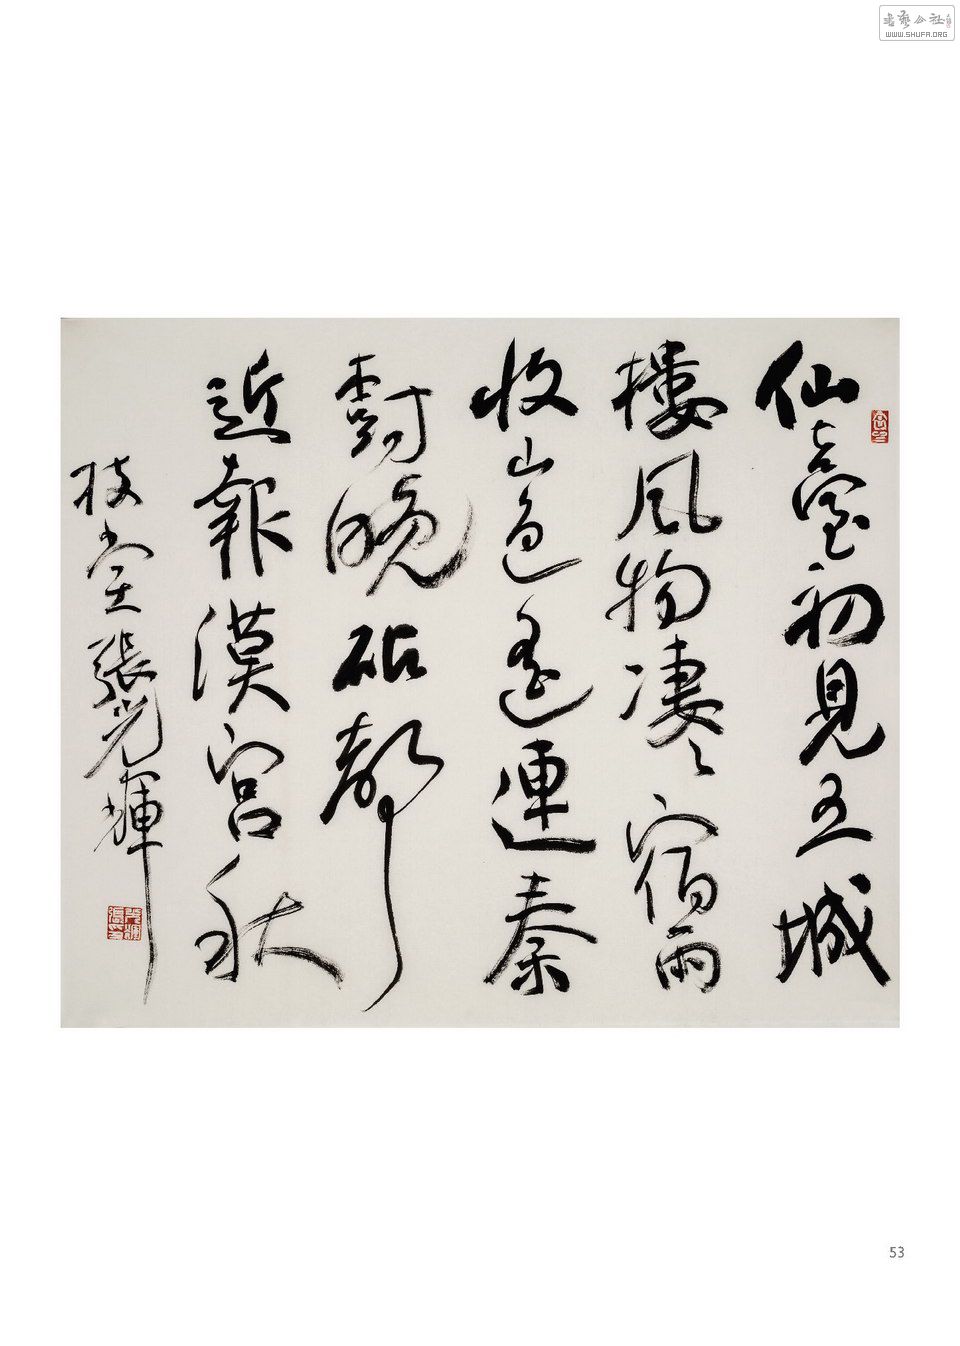 仙臺初見五城
樓風物凄〻宿雨
收山色遙連秦
樹晚砧都
近報漢宮秋
枝堂張光輝
书艺公社
WWW.SHUFA.ORG
53